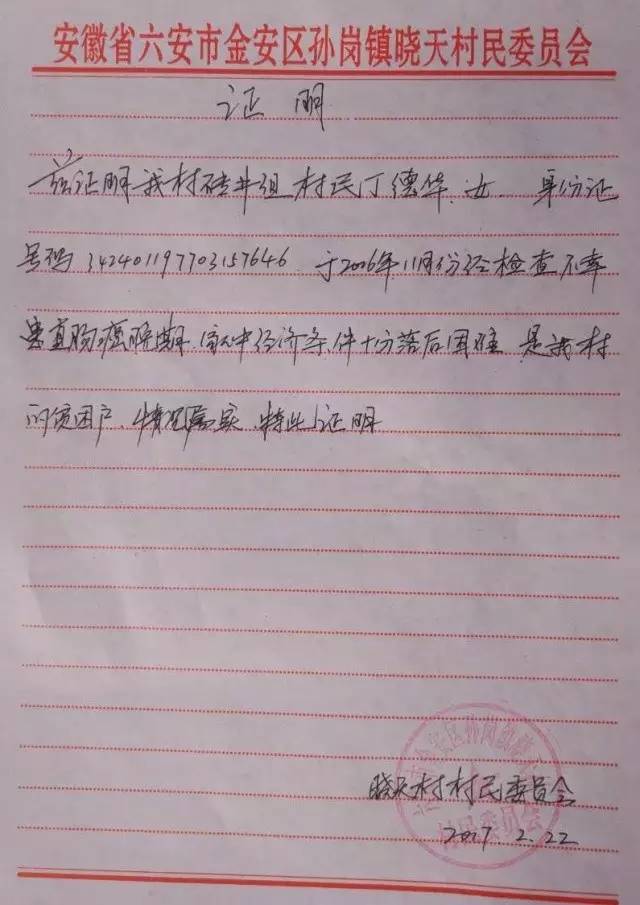 安徽省六安市金安区孙岗镇晓天村民委员会
证明
兹证明我村砖井组村民丁德华、女、身份证
号码342401197703157646 于2006年11月份经检查不幸
患直肠癌晚期、家中经济条件十分落后困难 是我村
的贫困户、情况属实、特此证明
晓天村村民委员会
2017.2.22
村民委员会